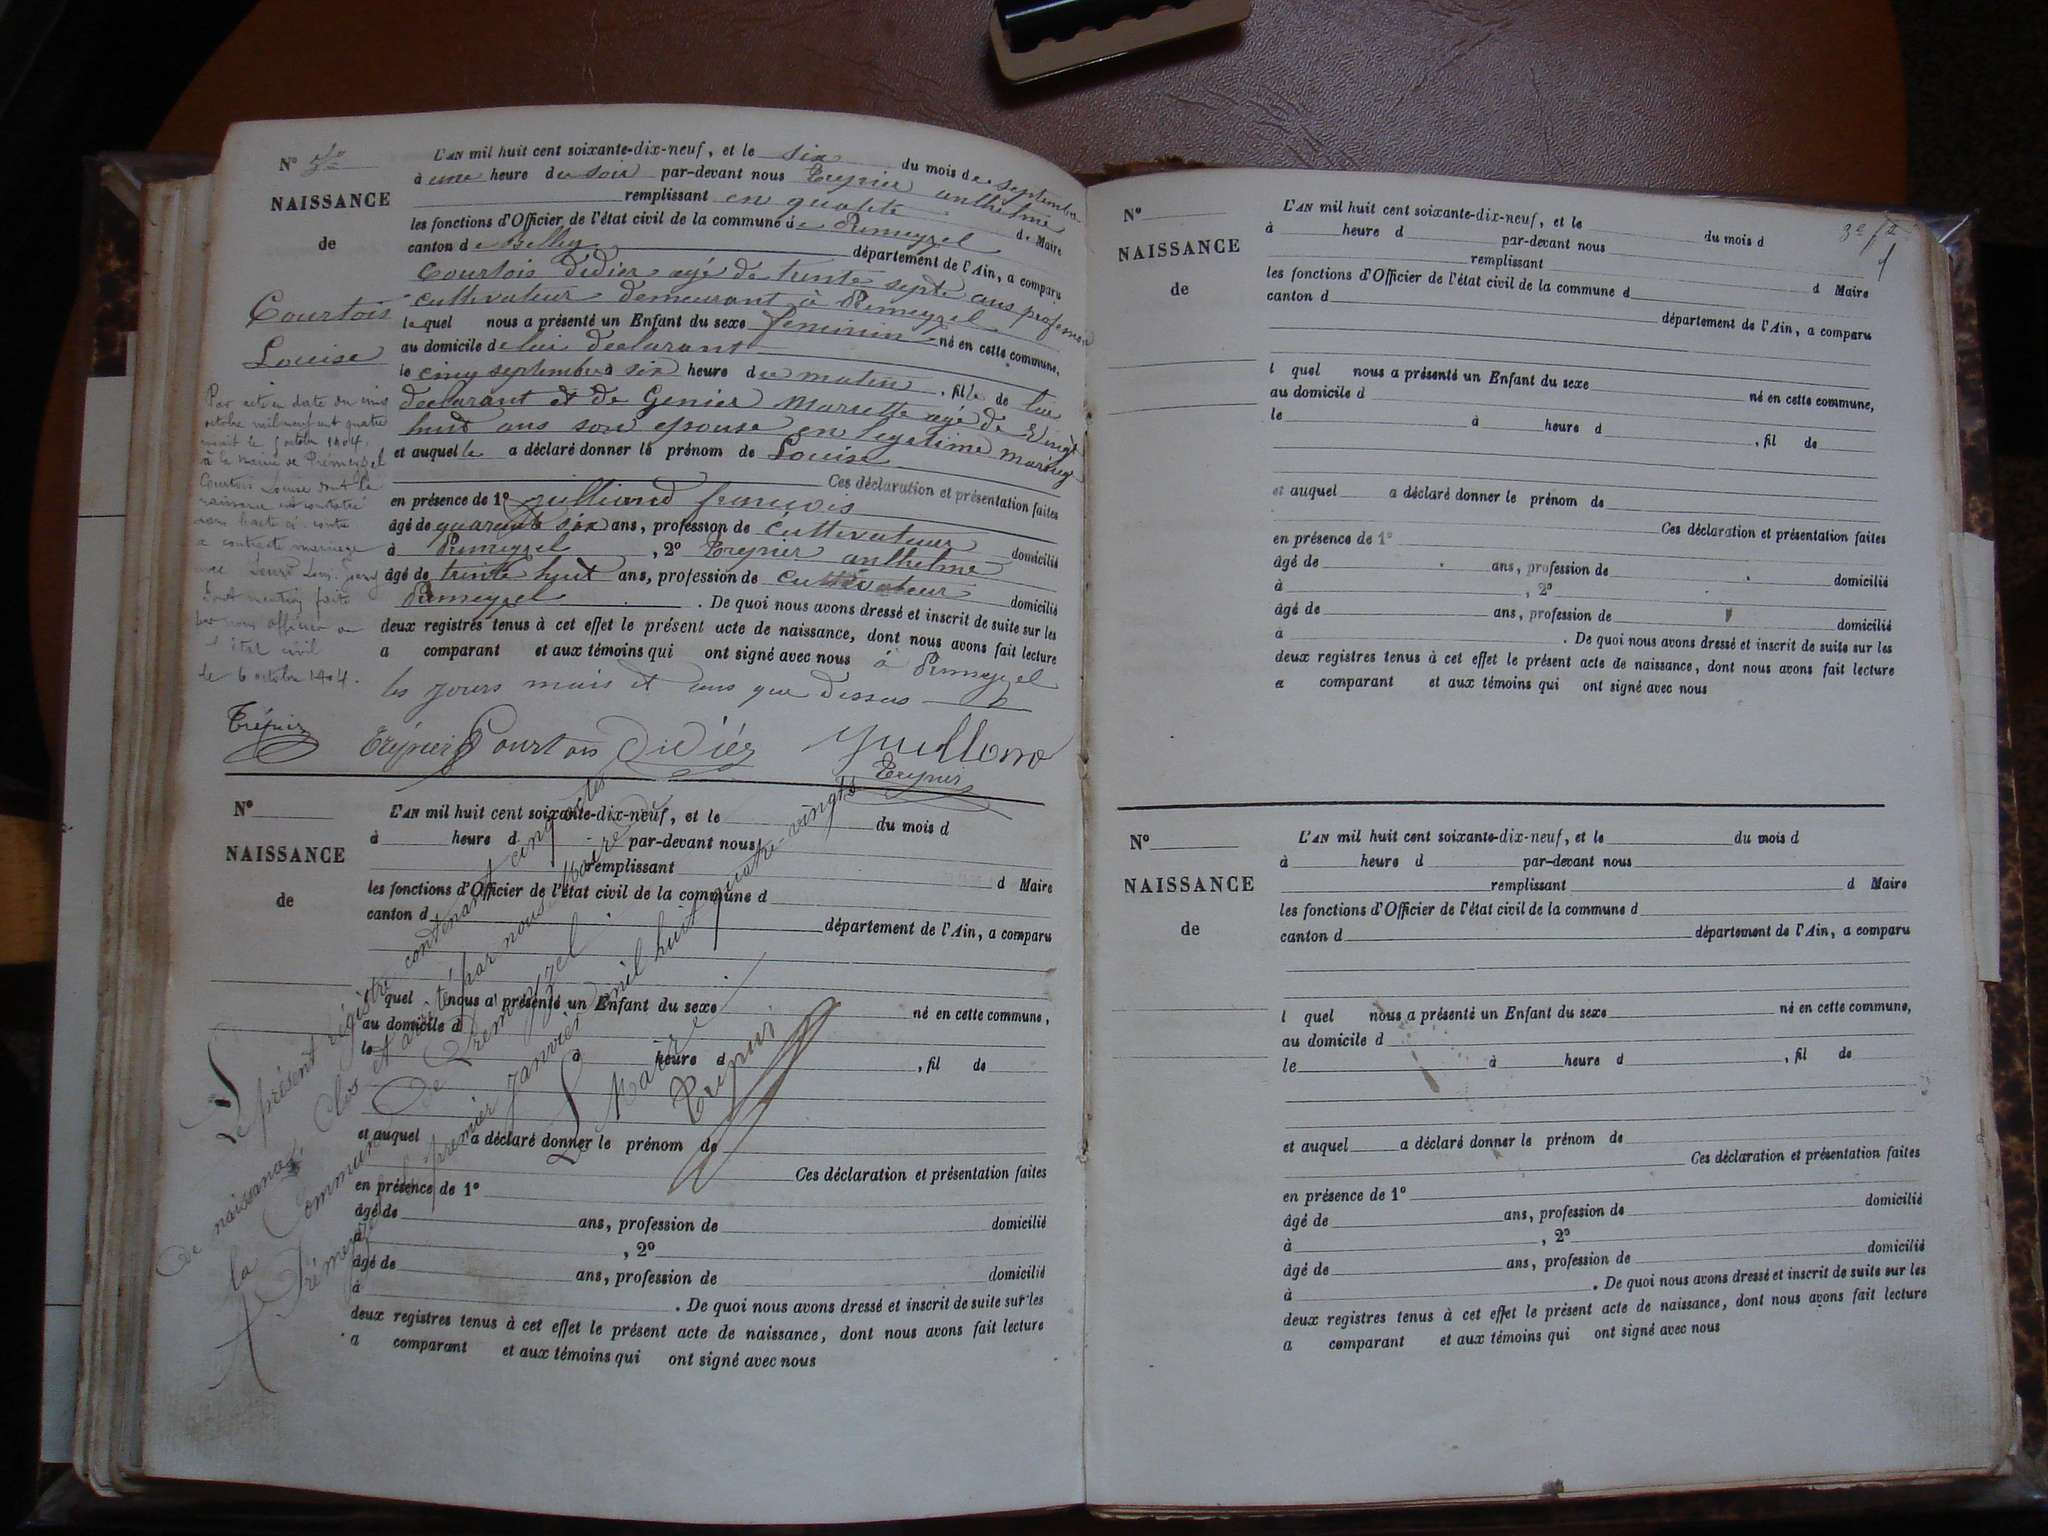 N° 5e
NAISSANCE
de
Courtois
Louise
Par acte en date du cinq
octobre mil neuf cent quatre
inscrit le 5 octobre 1904
à la mairie de Prémeyzel
Courtois Louise dont la
naissance est constatée
ci contre
a contracté mariage
avec
Dont mention faite
par nous officier de
l'état civil
le 6 octobre 1904.
Trépier
L'AN mil huit cent soixante-dix-neuf, et le six du mois de septembre
à une heure du soir par-devant nous Treynier anthelme
remplissant en qualité de Maire
les fonctions d'Officier de l'état civil de la commune de Premeyzel
canton de belley département de l'Ain, a comparu
Courtois didier agé de trente septe ans profession
cultivateur demeurant à Premeyzel
lequel nous a présenté un Enfant du sexe feminin né en cette commune,
au domicile de lui declarant
le cinq septembre à six heure du matin, fille de lui
declarant et de Genier Mariette agé de vingt
huit ans son epouse en legetime mariage
et auquel le a déclaré donner le prénom de Louise
Ces déclaration et présentation faites
en présence de 1° françois
âgé de quarante six ans, profession de cultivateur domicilié
à Premeyzel, 2° Treynier anthelme
âgé de trinte huit ans, profession de cultivateur domicilié
Premeyzel. De quoi nous avons dressé et inscrit de suite sur les
deux registres tenus à cet effet le présent acte de naissance, dont nous avons fait lecture
a comparant et aux témoins qui ont signé avec nous à Premeyzel
les jours mois et ans que dessus
Treynier Courtois Didier
Treynier
N°
NAISSANCE
de
L'AN mil huit cent soixante-dix-neuf, et le du mois d
à heure d par-devant nous
remplissant d Maire
les fonctions d'Officier de l'état civil de la commune d
canton d département de l'Ain, a comparu
l quel nous a présenté un Enfant du sexe né en cette commune,
au domicile d
le à heure d, fil de
et auquel a déclaré donner le prénom de
Ces déclaration et présentation faites
en présence de 1°
âgé de ans, profession de domicilié
à, 2°
âgé de ans, profession de domicilié
à. De quoi nous avons dressé et inscrit de suite sur les
deux registres tenus à cet effet le présent acte de naissance, dont nous avons fait lecture
a comparant et aux témoins qui ont signé avec nous
Le présent régistre contenant cinq actes
de naissance, clos et arrêté par nous Maire de
la Commune de Prémeyzel
A Prémeyzel le premier janvier mil huit cent quatre-vingts
Le Maire
N°
NAISSANCE
de
3e
L'AN mil huit cent soixante-dix-neuf, et le du mois d
à heure d par-devant nous
remplissant d Maire
les fonctions d'Officier de l'état civil de la commune d
canton d département de l'Ain, a comparu
l quel nous a présenté un Enfant du sexe né en cette commune,
au domicile d
le à heure d, fil de
et auquel a déclaré donner le prénom de
Ces déclaration et présentation faites
en présence de 1°
âgé de ans, profession de domicilié
à, 2°
âgé de ans, profession de domicilié
à. De quoi nous avons dressé et inscrit de suite sur les
deux registres tenus à cet effet le présent acte de naissance, dont nous avons fait lecture
a comparant et aux témoins qui ont signé avec nous
N°
NAISSANCE
de
L'AN mil huit cent soixante-dix-neuf, et le du mois d
à heure d par-devant nous
remplissant d Maire
les fonctions d'Officier de l'état civil de la commune d
canton d département de l'Ain, a comparu
l quel nous a présenté un Enfant du sexe né en cette commune,
au domicile d
le à heure d, fil de
et auquel a déclaré donner le prénom de
Ces déclaration et présentation faites
en présence de 1°
âgé de ans, profession de domicilié
à, 2°
âgé de ans, profession de domicilié
à. De quoi nous avons dressé et inscrit de suite sur les
deux registres tenus à cet effet le présent acte de naissance, dont nous avons fait lecture
a comparant et aux témoins qui ont signé avec nous